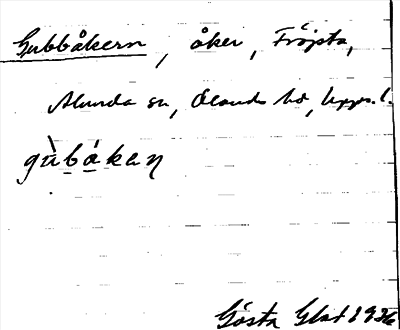 Gubbåkern, åker, Fröjsta,
Alunda sn, Ölands hd, Upps. l.
gùbákaɳ
Gösta Glad 1936